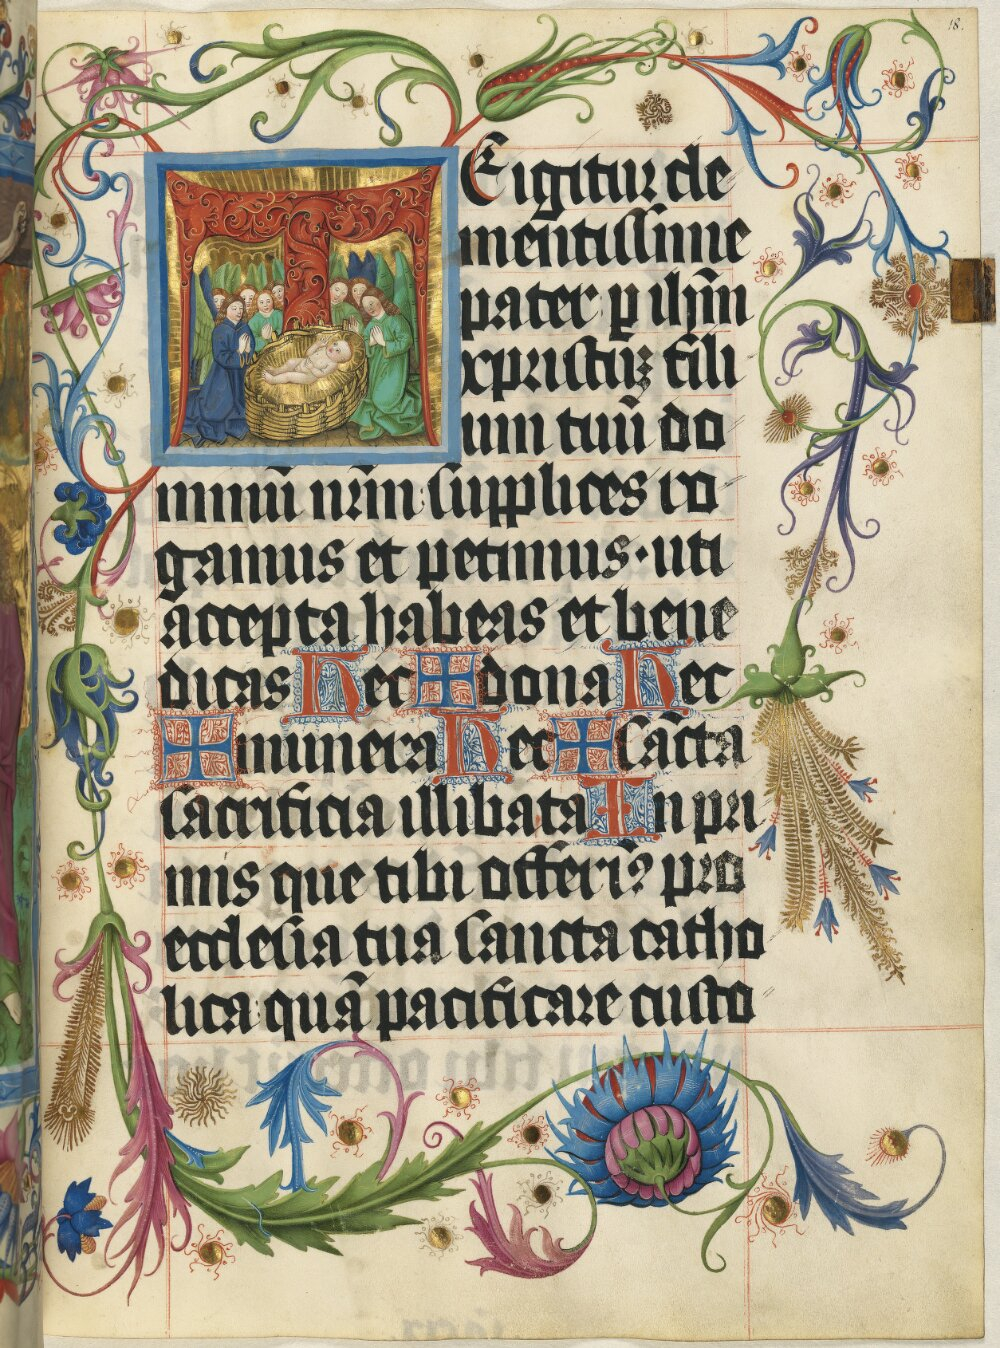 18.
T E igitur cle
mentissime
pater p̱ ihm̄
xpristuȝ fili
um tuū do
minū nr̄m supplices ro
gamus et petimus · uti
accepta habeas et bene
dicas Hec ✠ dona Hec
✠ munera Hec ✠ sācta
sacrificia illibata In pri
mis que tibi offerim᷒ pro
ecclesia tua sancta catho
lica quā pacificare custo